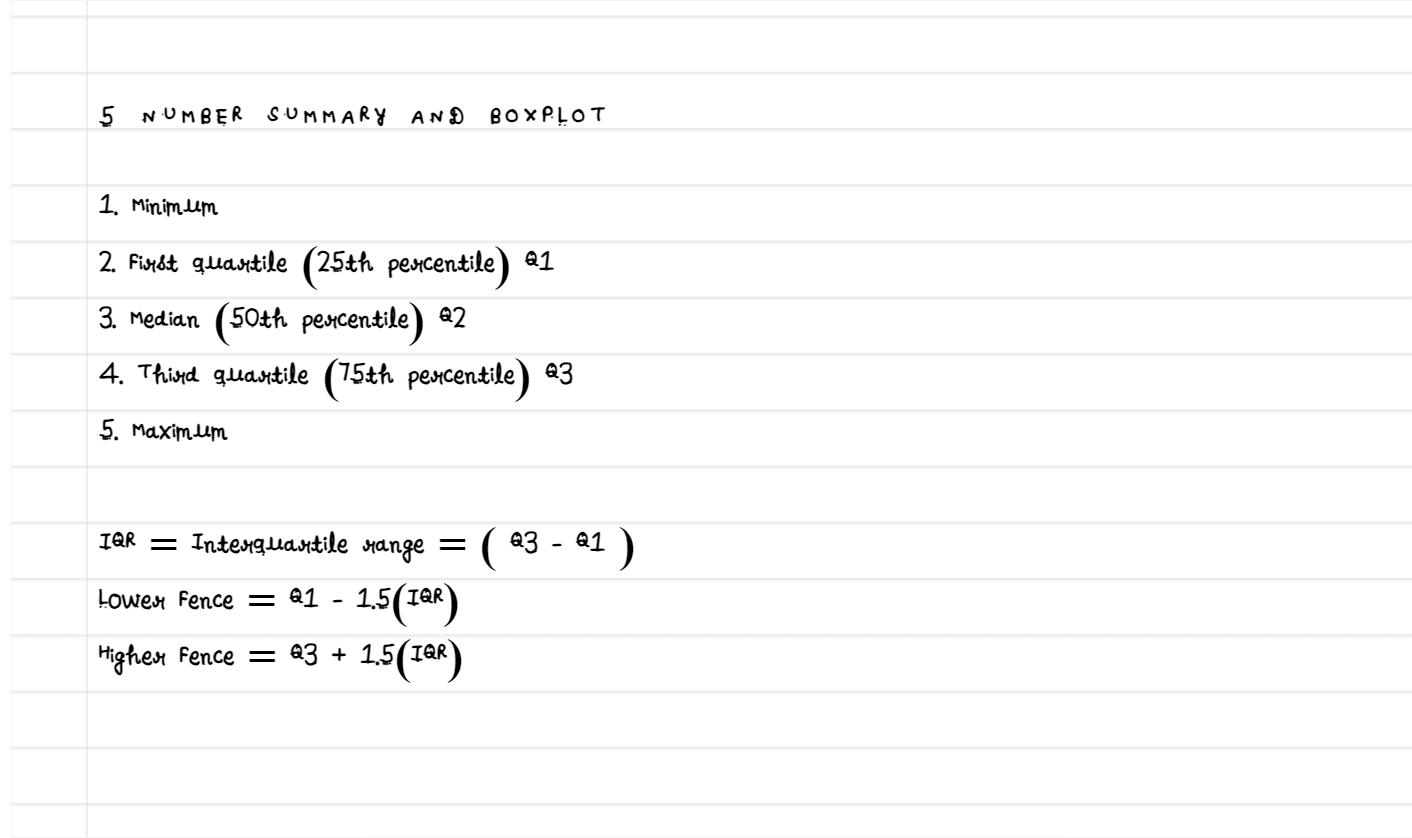 5 NUMBER SUMMARY AND BOXPLOT
1. Minimum
2. First quartile (25th percentile) Q1
3. Median (50th percentile) Q2
4. Third quartile (75th percentile) Q3
5. Maximum
IQR = Interquartile range = ( Q3 - Q1 )
Lower Fence = Q1 - 1.5(IQR)
Higher Fence = Q3 + 1.5(IQR)